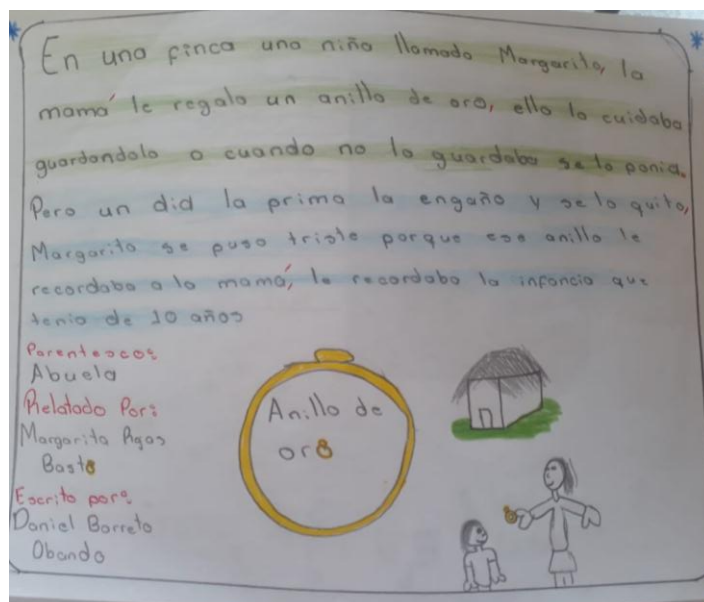 En una finca una niña llamada Margarita, la
mamá le regalo un anillo de oro, ella lo cuidaba
guardandolo o cuando no lo guardaba se lo ponia.
Pero un did la prima la engaño y se lo quito,
Margarita se puso triste porque ese anillo le
recordaba a la mamá, le recordaba la infancia que
tenia de 10 años
Parentescos:
Abuela
Relatado Por:
Margarita Rojas
Basto
Escrito por:
Daniel Barreto
Obando
Anillo de
oro